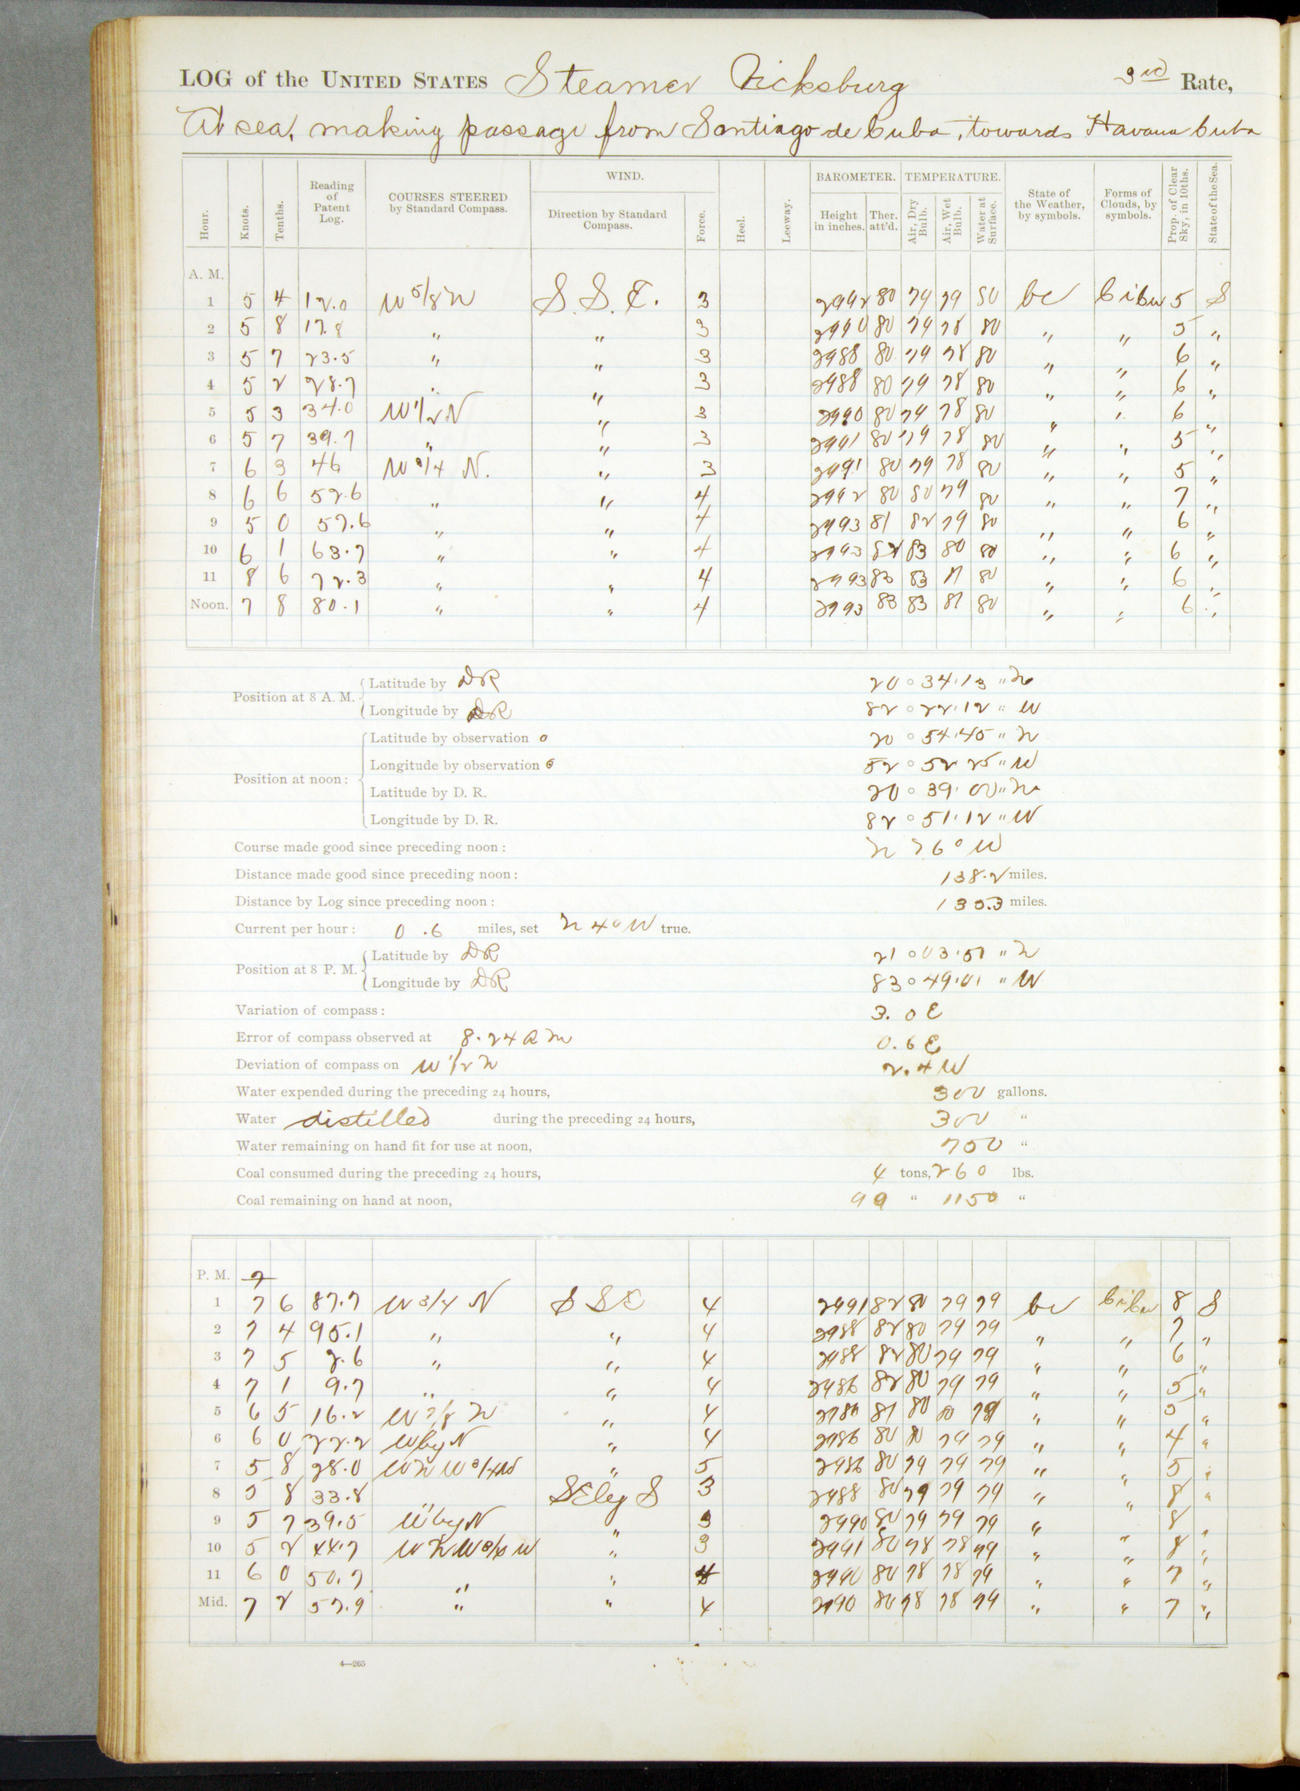 LOG of the UNITED STATES Steamer Vicksburg 3rd Rate,
At sea, making passage from Santiago de Cuba, towards Havana Cuba
Hour. Knots. Tenths. Reading of Patent Log. COURSES STEERED by Standard Compass. WIND. Direction by Standard Compass. Force. Heel. Leeway. BAROMETER. Height in inches. Ther. att'd. TEMPERATURE. Air, Dry Bulb. Air, Wet Bulb. Water at Surface. State of the Weather, by symbols. Forms of Clouds, by symbols. Prop. of Clear Sky, in 10ths. State of the Sea.
A. M.
1 5 4 12.0 W 5/8 N S. S. E. 3 2992 80 79 79 80 bc Cicu 5 S
2 5 8 17.8 " " 3 2990 80 79 78 80 " " 5 "
3 5 7 23.5 " " 3 2988 80 79 78 80 " " 6 "
4 5 2 28.7 " " 3 2988 80 79 78 80 " " 6 "
5 5 3 34.0 W 1/2 N " 3 2990 80 79 78 80 " " 6 "
6 5 7 39.7 " " 3 2991 80 79 78 80 " " 5 "
7 6 3 46 W 3/4 N. " 3 2991 80 79 78 80 " " 5 "
8 6 6 52.6 " " 4 2992 80 80 79 80 " " 7 "
9 5 0 57.6 " " 4 2993 81 82 79 80 " " 6 "
10 6 1 63.7 " " 4 2993 82 83 80 80 " " 6 "
11 8 6 72.3 " " 4 2993 83 83 81 80 " " 6 "
Noon. 7 8 80.1 " " 4 2993 83 83 81 80 " " 6 "
Position at 8 A. M. Latitude by DR 20 ° 34' 13 " N
Longitude by DR 82 ° 22' 12 " W
Position at noon: Latitude by observation o 20 ° 54' 45 " N
Longitude by observation 82 ° 52 25 " W
Latitude by D. R. 20 ° 39' 00 " N
Longitude by D. R. 82 ° 51' 12 " W
Course made good since preceding noon: N 76° W
Distance made good since preceding noon: 138.2 miles.
Distance by Log since preceding noon: 135.3 miles.
Current per hour: 0.6 miles, set N 4° W true.
Position at 8 P. M. Latitude by DR 21 ° 03' 51 " N
Longitude by DR 83 ° 49' 01 " W
Variation of compass: 3.0 E
Error of compass observed at 8.24 a m 0.6 E
Deviation of compass on W 1/2 N 2.4 W
Water expended during the preceding 24 hours, 300 gallons.
Water distilled during the preceding 24 hours, 300 "
Water remaining on hand fit for use at noon, 750 "
Coal consumed during the preceding 24 hours, 4 tons, 260 lbs.
Coal remaining on hand at noon, 99 " 1150 "
P. M. 7
1 7 6 87.7 W 3/4 N S S E 4 2991 82 80 79 79 bc Cicu 8 S
2 7 4 95.1 " " 4 2988 82 80 79 79 " " 7 "
3 7 5 2.6 " " 4 2988 82 80 79 79 " " 6 "
4 7 1 9.7 " " 4 2986 82 80 79 79 " " 5 "
5 6 5 16.2 W 7/8 N " 4 81 80 79 " " 5 "
6 6 0 22.2 W by N " 4 2986 80 80 79 79 " " 4 "
7 5 8 28.0 WNW 3/4 W " 5 2986 80 79 79 79 " " 5 "
8 5 8 33.8 SE by S 3 2988 80 79 79 79 " " 8 "
9 5 7 39.5 W by N " 3 2990 80 79 79 79 " 8 "
10 5 2 44.7 WNW 3/4 W " 3 2991 80 78 78 79 " " 8 "
11 6 0 50.7 " " 4 2990 80 78 78 79 " " 7 "
Mid. 7 2 57.9 " " 4 2990 80 78 78 79 " " 7 "
4—265